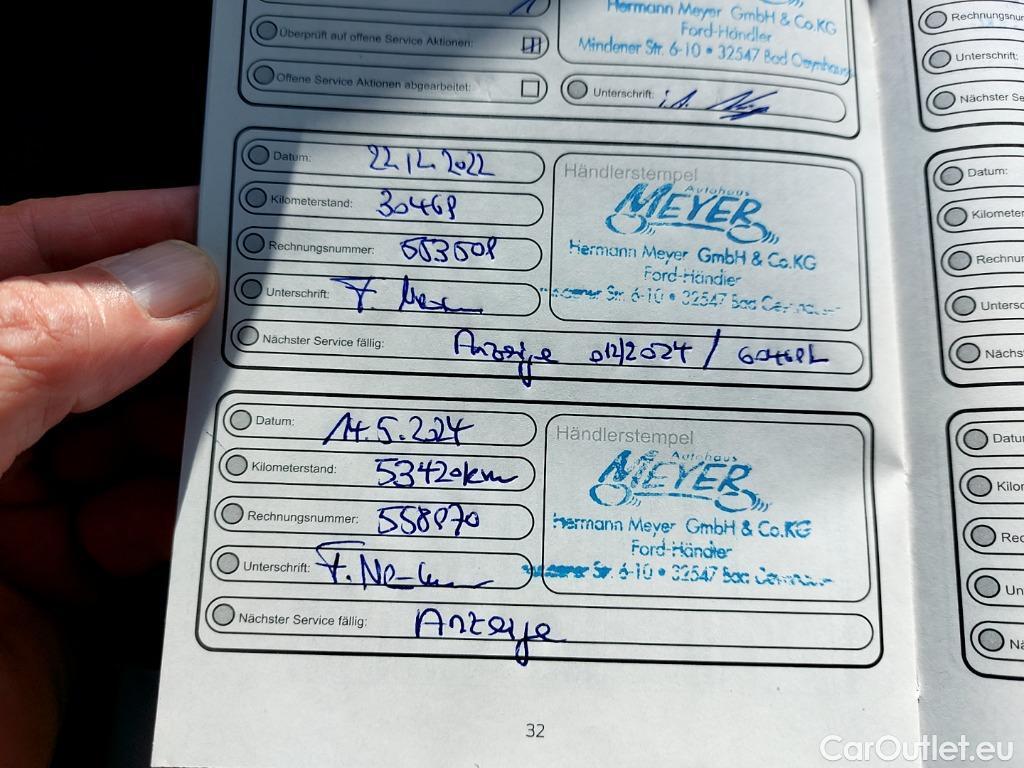 Hermann Meyer GmbH & Co.KG
Ford-Händler
Mindener Str. 6-10 • 32547 Bad Oeynhausen
Überprüft auf offene Service Aktionen:
Offene Service Aktionen abgearbeitet:
Unterschrift: i.A.
Datum: 22.12.2022
Kilometerstand: 30468
Rechnungsnummer: 553508
Unterschrift: F.
Nächster Service fällig: Anzeige 012/2024 / 60468
Händlerstempel
Autohaus
MEYER
Hermann Meyer GmbH & Co.KG
Ford-Händler
Str. 6-10 • 32547 Bad
Datum: 14.5.2024
Kilometerstand: 53420km
Rechnungsnummer: 558870
Unterschrift: F.
Nächster Service fällig: Anzeige
Händlerstempel
Autohaus
MEYER
Hermann Meyer GmbH & Co.KG
Ford-Händler
Str. 6-10 • 32547 Bad
32
Rechnungsnu
Unterschrift:
Nächster Se
Datum:
Kilometer
Rechnun
Untersc
Nächst
Datu
Kilo
Rec
Un
Nä
CarOutlet.eu